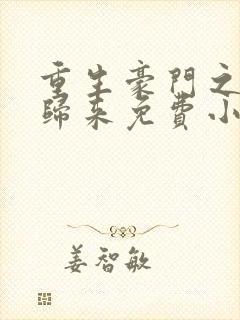 重生豪門之
歸來免費小
姜智敏